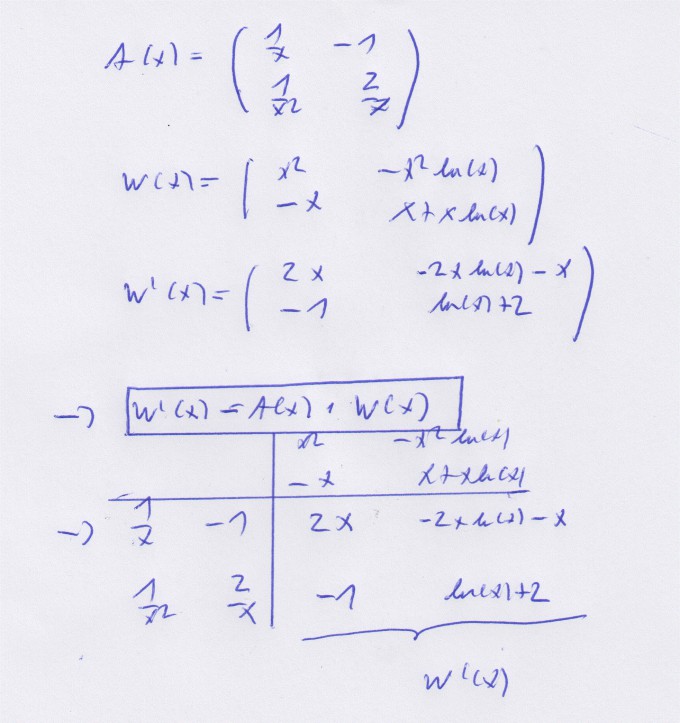 A(x) = ( 1/x -1
1/x2 2/x )
W(x) = ( x² -x² ln(x)
-x x+x ln(x) )
W'(x) = ( 2x -2x ln(x) - x
-1 ln(x)+2 )
→ W'(x) = A(x) · W(x)
x² -x² ln(x)
-x x+x ln(x)
→ 1/x -1 2x -2x ln(x) - x
1/x² 2/x -1 ln(x)+2
W'(x)